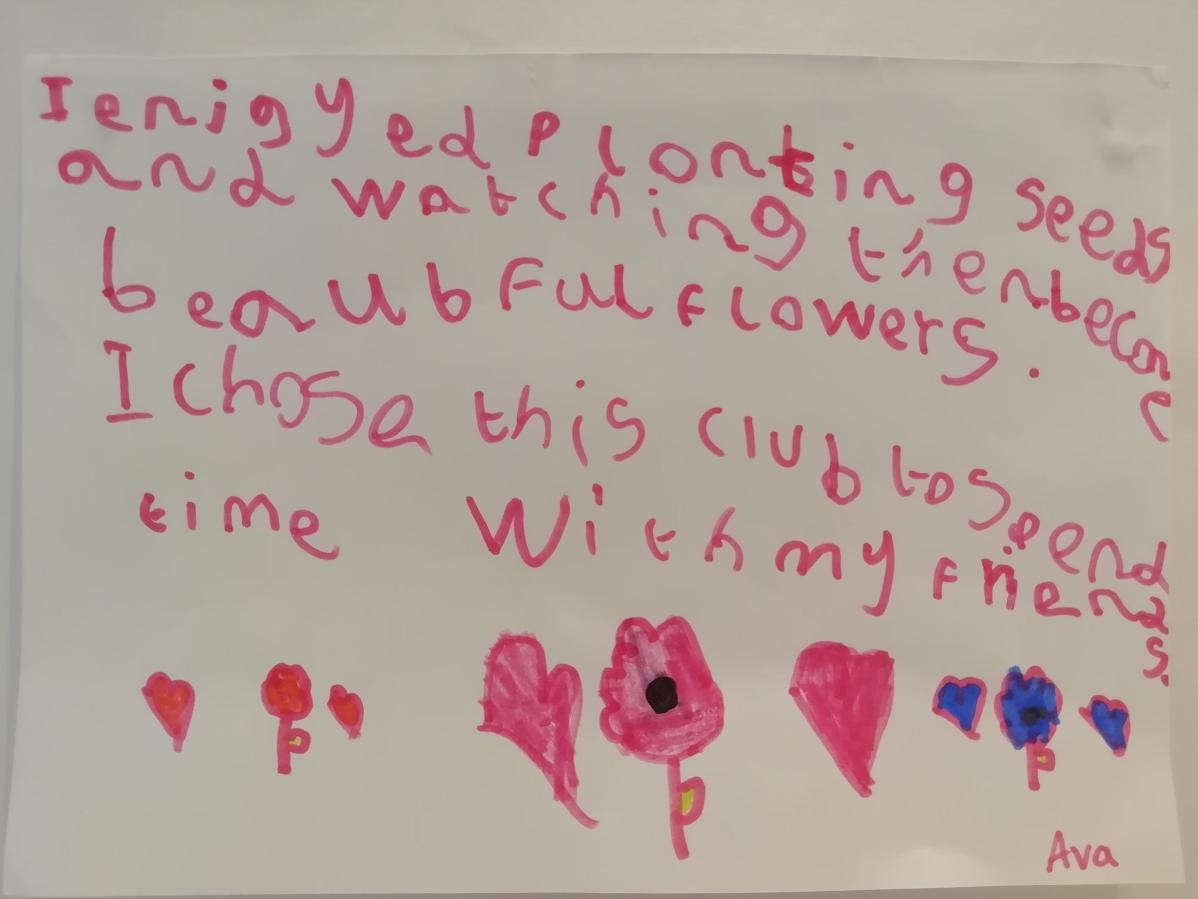 I enigyed plonting seeds
and watching then become
beaubful flowers.
I chose this club to seend
time with my friends.
Ava